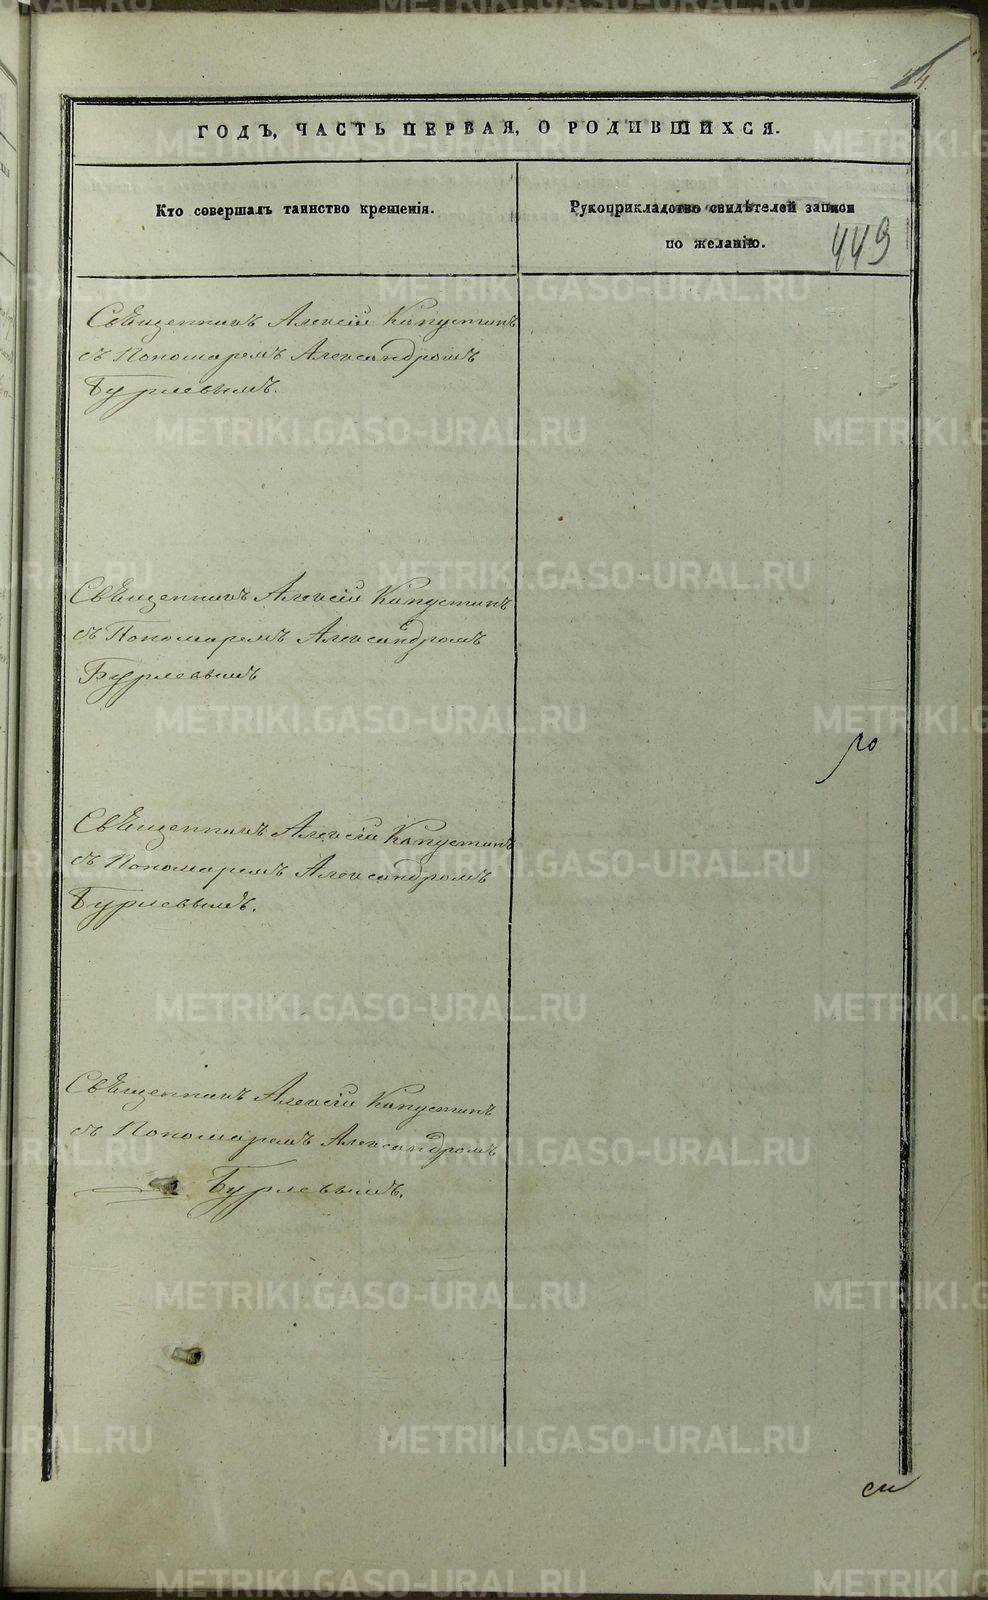 4.
ГОДЪ, ЧАСТЬ ПЕРВАЯ, О РОДИВШИХСЯ.
Кто совершалъ таинство крещенія.
Рукоприкладство свидѣтелей записи
по желанію.
449
Священникъ Алексій Капустинъ
съ Пономаремъ Александромъ
Бурлевымъ.
Священникъ Алексій Капустинъ
съ Пономаремъ Александромъ
Бурлевымъ
го
Священникъ Алексій Капустинъ
съ Пономаремъ Александромъ
Бурлевымъ.
Священникъ Алексій Капустинъ
съ Пономаремъ Александромъ
Бурлевымъ.
METRIKI.GASO-URAL.RU